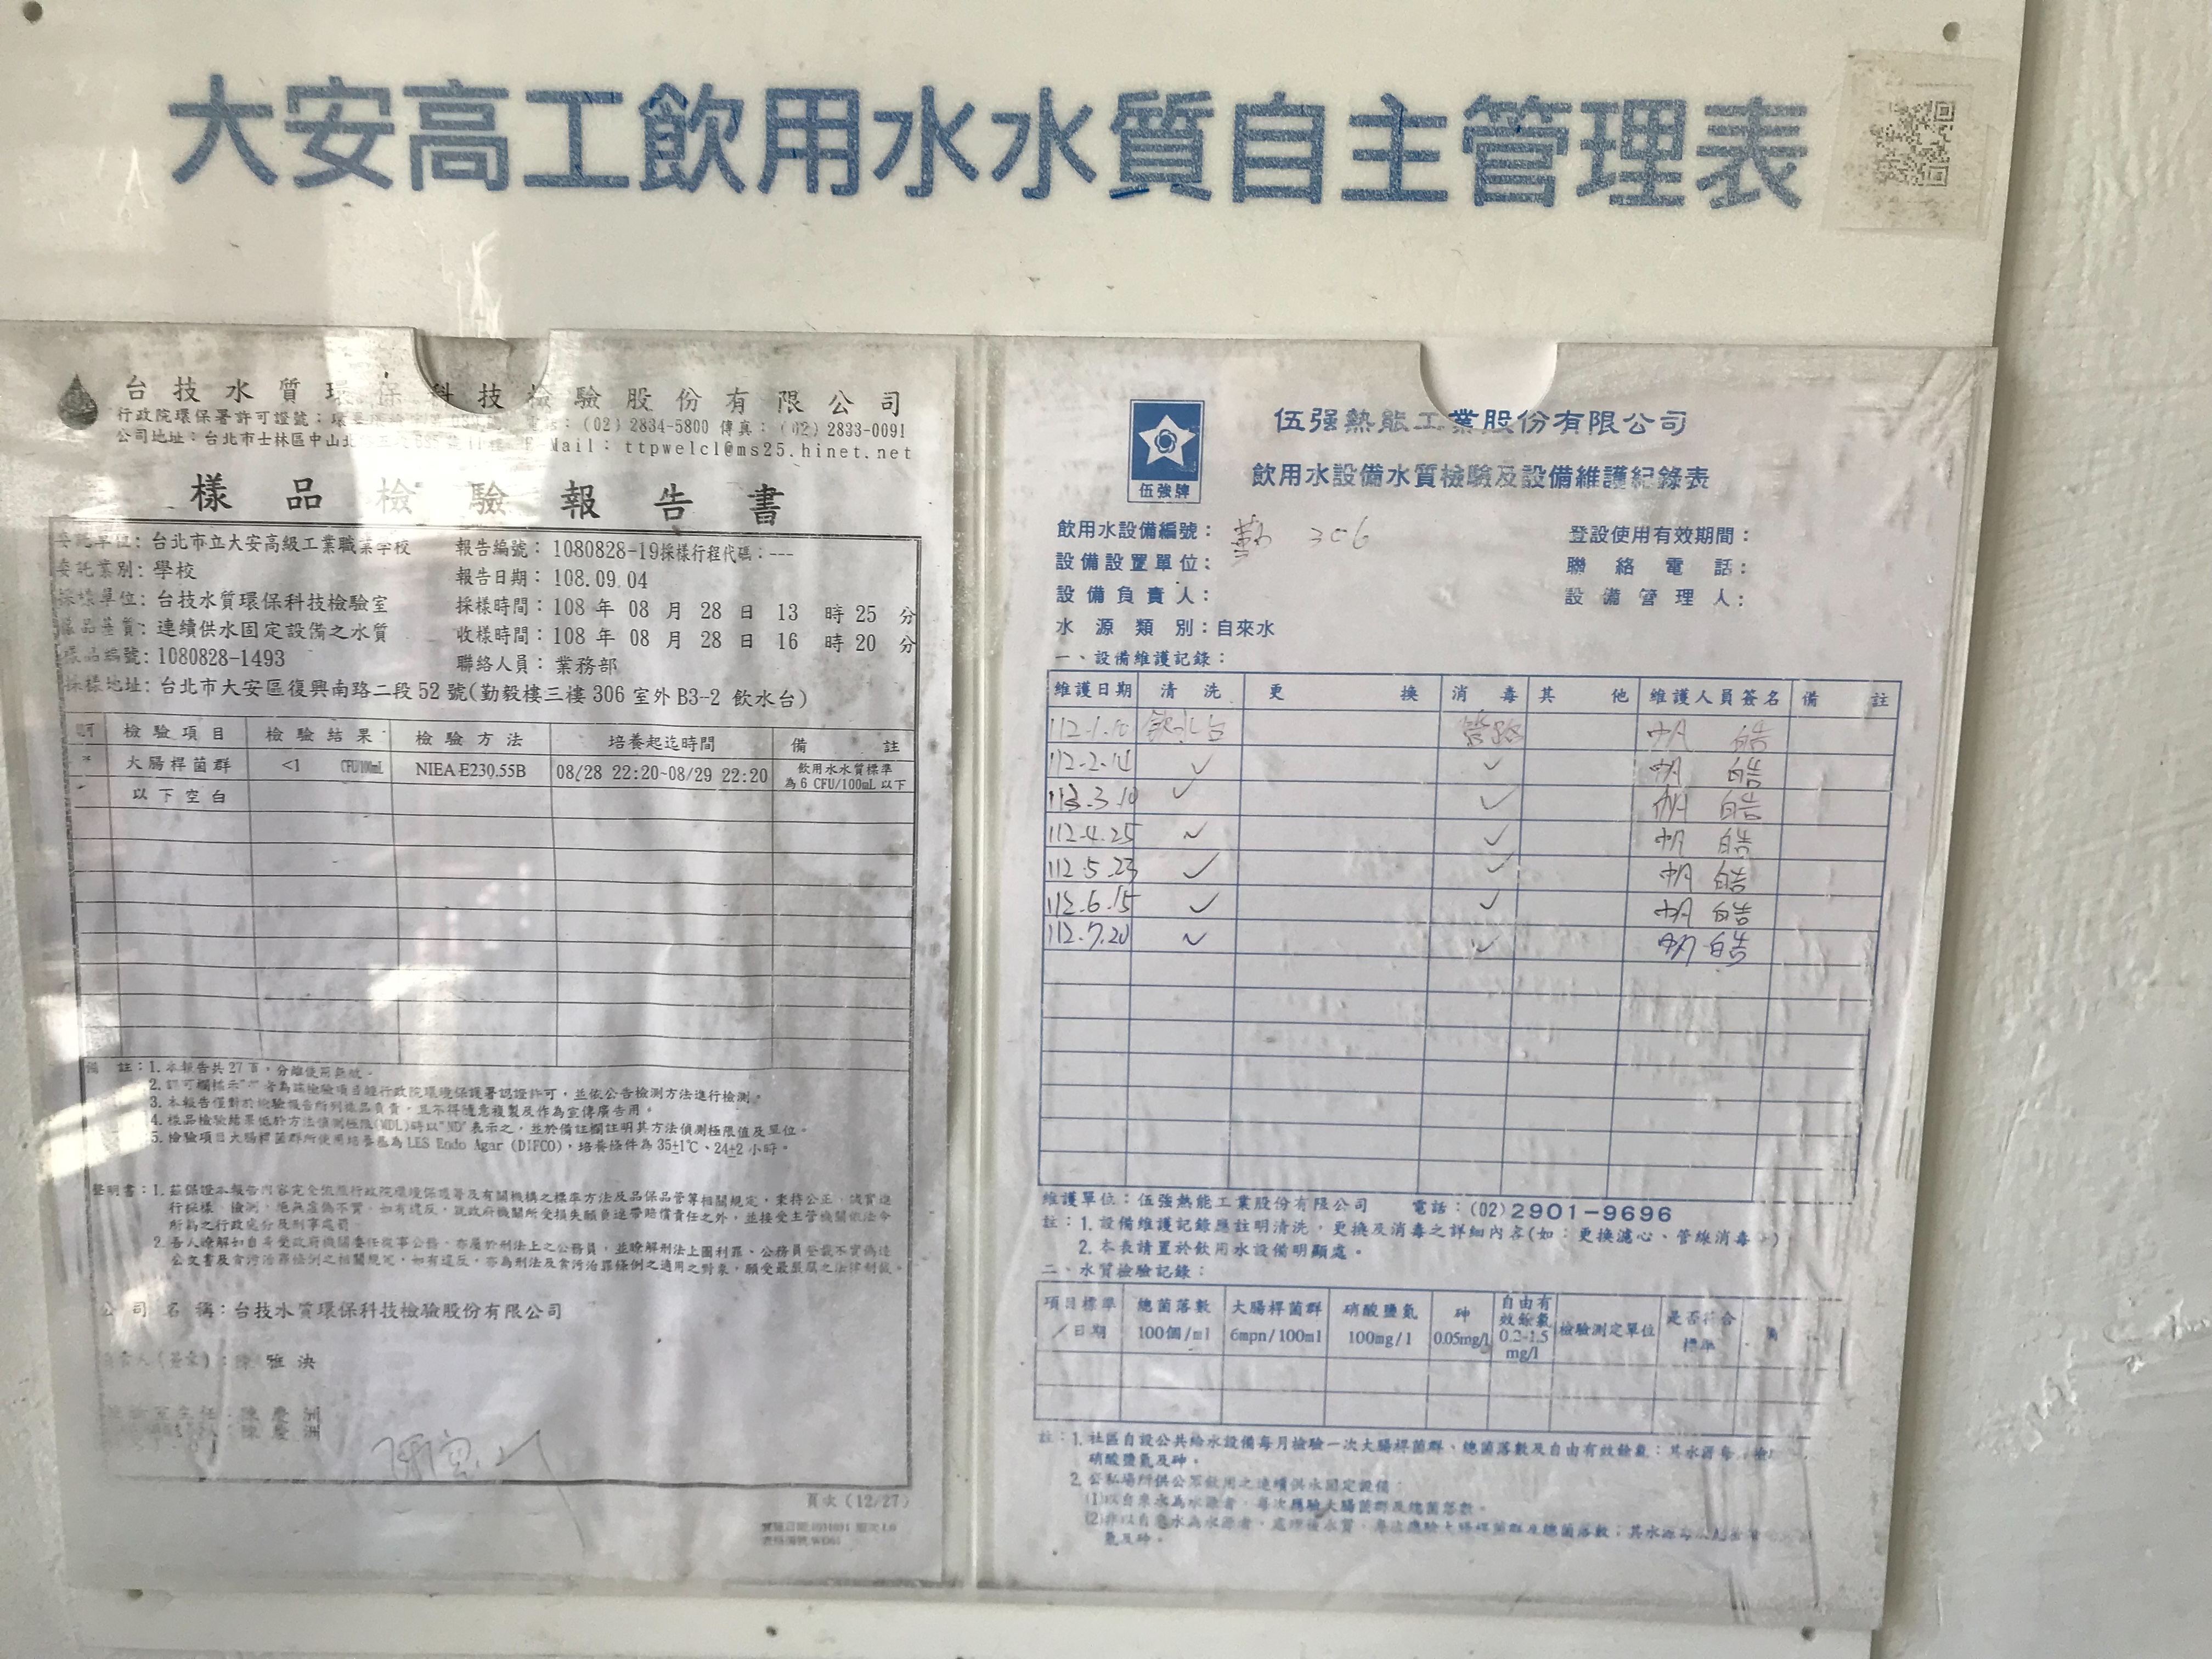 大安高工飲用水水質自主管理表
台技水質環保科技檢驗股份有限公司
行政院環保署許可證號：環 電話：(02)2834-5800 傳真：(02)2833-0091
公司地址：台北市士林區中山北 E-Mail：ttpwelcl@ms25.hinet.net
樣品檢驗報告書
委託單位：台北市立大安高級工業職業學校 報告編號：1080828-19採樣行程代碼：---
委託業別：學校 報告日期：108.09.04
採樣單位：台技水質環保科技檢驗室 採樣時間：108 年 08 月 28 日 13 時 25 分
樣品基質：連續供水固定設備之水質 收樣時間：108 年 08 月 28 日 16 時 20 分
樣品編號：1080828-1493 聯絡人員：業務部
採樣地址：台北市大安區復興南路二段 52 號(勤毅樓三樓 306 室外 B3-2 飲水台)
檢驗項目 檢驗結果 檢驗方法 培養起迄時間 備註
* 大腸桿菌群 <1 CFU/100mL NIEA E230.55B 08/28 22:20~08/29 22:20 飲用水水質標準
為 6 CFU/100mL 以下
以下空白
備註：1. 本報告共27頁，分離使用無效。
2. 許可欄標示"*"者為該檢驗項目經行政院環境保護署認證許可，並依公告檢測方法進行檢測。
3. 本報告僅對於檢驗報告所列樣品負責，且不得隨意複製及作為宣傳廣告用。
4. 樣品檢驗結果低於方法偵測極限(MDL)時以"ND"表示之，並於備註欄註明其方法偵測極限值及單位。
5. 檢驗項目大腸桿菌群所使用培養基為 LES Endo Agar (DIFCO)，培養條件為 35±1℃、24±2 小時。
聲明書：1. 茲保證本報告內容完全依照行政院環境保護署及有關機構之標準方法及品保品管等相關規定，秉持公正、誠實進
行採樣、檢測，絕無虛偽不實，如有違反，就政府機關所受損失願負連帶賠償責任之外，並接受主管機關依法令
所為之行政處分及刑事處罰。
2. 吾人瞭解如自身受政府機關委任從事公務，亦屬於刑法上之公務員，並瞭解刑法上圖利罪、公務員登載不實偽造
公文書及貪污治罪條例之相關規定，如有違反，亦為刑法及貪污治罪條例之適用之對象，願受最嚴厲之法律制裁。
公司名稱：台技水質環保科技檢驗股份有限公司
負責人(簽章)：陳雅泱
檢驗室主任：陳慶洲
陳慶洲
頁次 (12/27)
伍強牌
伍强熱能工業股份有限公司
飲用水設備水質檢驗及設備維護紀錄表
飲用水設備編號：勤 306 登設使用有效期間：
設備設置單位： 聯絡電話：
設備負責人： 設備管理人：
水源類別：自來水
一、設備維護記錄：
維護日期 清洗 更換 消毒 其他 維護人員簽名 備註
112.1.10 飲水台 管路 帆 皓
112.2.14 ✓ ✓ 帆 皓
112.3.10 ✓ ✓ 帆 皓
112.4.25 ✓ ✓ 帆 皓
112.5.23 ✓ ✓ 帆 皓
112.6.15 ✓ ✓ 帆 皓
112.7.20 ✓ ✓ 帆 皓
維護單位：伍強熱能工業股份有限公司 電話：(02)2901-9696
註：1. 設備維護記錄應註明清洗，更換及消毒之詳細內容(如：更換濾心、管線消毒…)
2. 本表請置於飲用水設備明顯處。
二、水質檢驗記錄：
項目標準／日期 總菌落數 100個/ml 大腸桿菌群 6mpn/100ml 硝酸鹽氮 100mg/l 砷 0.05mg/l 自由有效餘氯 0.2-1.5 mg/l 檢驗測定單位 是否符合標準
註：1. 社區自設公共給水設備每月檢驗一次大腸桿菌群、總菌落數及自由有效餘氯；其水源每
硝酸鹽氮及砷。
2. 公私場所供公眾飲用之連續供水固定設備：
(1)以自來水為水源者，每次應驗大腸菌群及總菌落數。
(2)非以自來水為水源者，處理後水質，每次應驗大腸桿菌群及總菌落數；其水源
氮及砷。